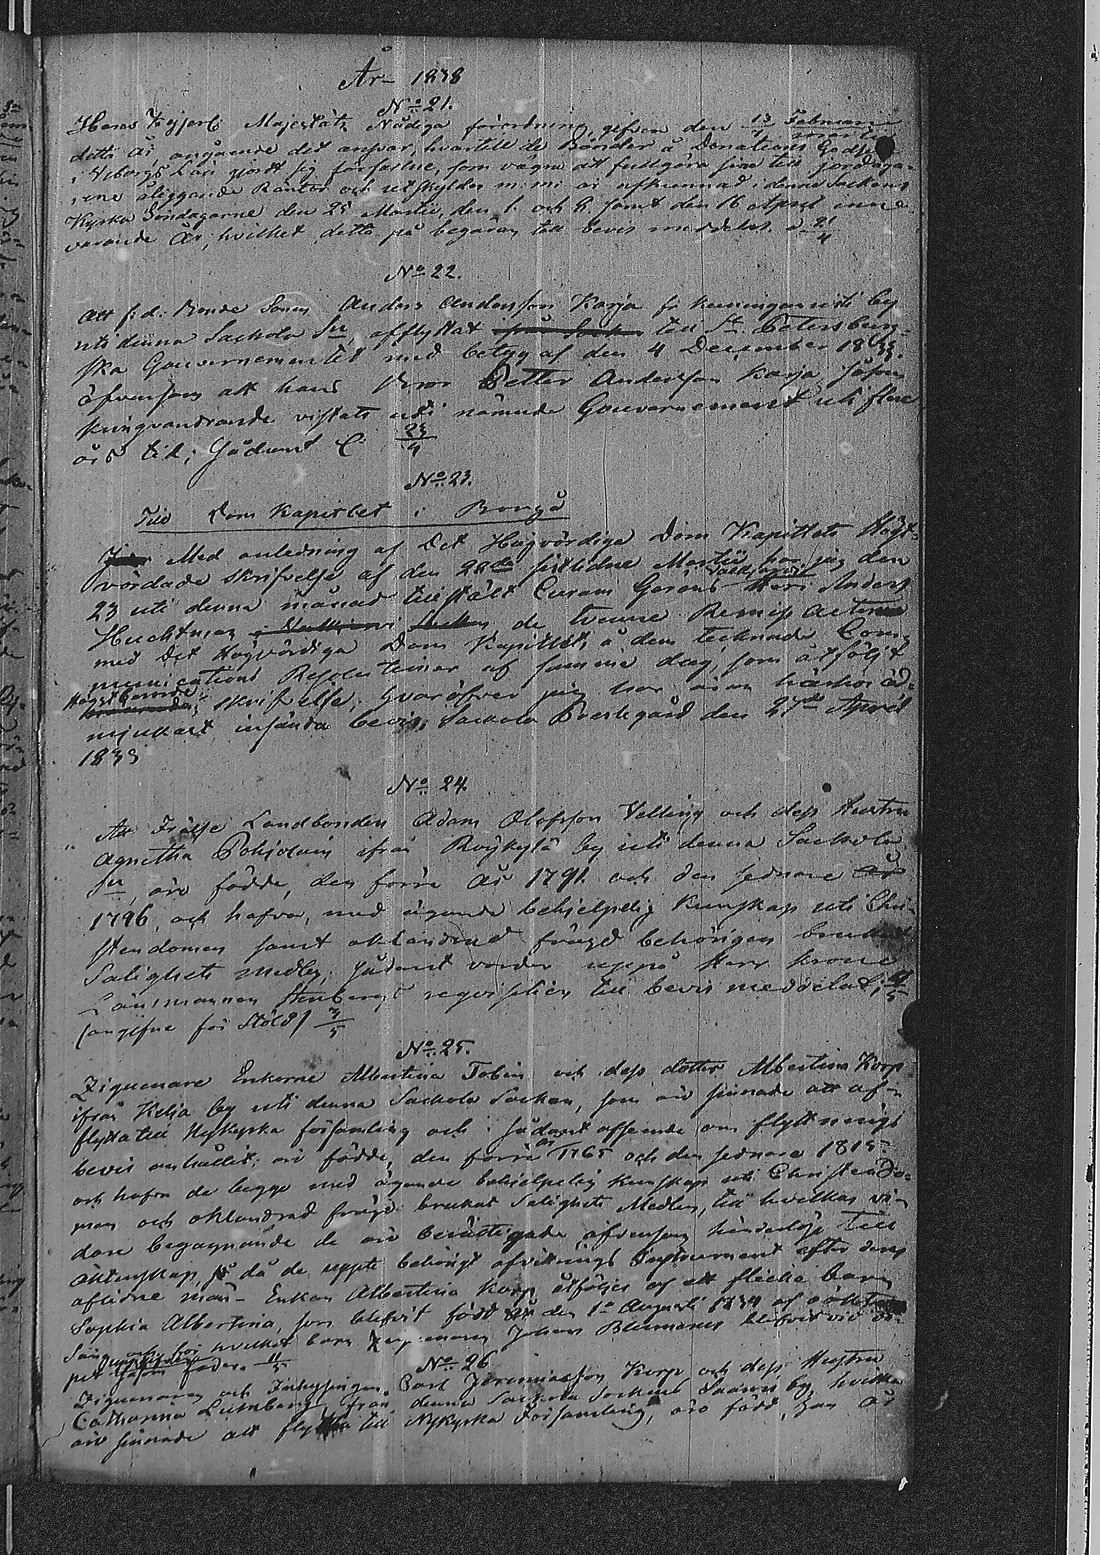 År 1838
No 21.
Hans Kejserl. Majestäts Nådiga förordning, gifven den 13 Februari
detta år angående det ansvar, hvartill de Bönder å Donations Gods
i Wiborgs Län gjort sig förfallne, som vägra att fullgöra sina till
åliggande Räntor och utskylder m: m: är afkunnad i denna Sockens
Kyrka Söndagarne den 25 Martii, den 1. och 8. samt den 16 April inne-
varande år; hvilket detta på begäran till bevis meddelas. d. 21/4
No 22.
Att f. d. Bonde Sonen Anders Andersson Karja fr. by
uti denna Sackola Sn afflyttat till St. Petersburg-
ska Gouvernementet med betyg af den 4 December 1833.
äfvensom att hans Bror Petter Andersson Karja såsom
kringvandrande vistats uti nämnde Gouvernement uti flere
års tid; Sådant 23/4
No 23.
Till Dom Kapitlet i Borgå
Med anledning af Det Högvördige Dom Kapitlets Högt-
vördade skrifvelse af den 28de sistlidne Martii har jag den
23 uti denna månad tillställt Curam Gerens Herr Anders
Huchtman de tvenne Remiss Acterne
med Det Högvördiga Dom Kapitlets å dem tecknade Com-
munications Resolutioner af samma dag, som åtföljt
Högstberörde skrifvelse; hvaröfver jag har äran härhos öd-
mjukast insända bevis, Sackola Prestegård den 27de April
1838
No 24.
Att Frälse Landbonden Adam Olofsson Velling och dess Hustru
Agnetha Pohjolain ifrån Röykylä by uti denna Sackola
Sn äro födde, den förre År 1791. och den sednare
1796, och hafva, med ägande behjelpelig kunskap uti Chri-
stendomen samt oklandrad frägd behörigen brukat
Salighets medlen; sådant varder uppå Herr Krono
Länsmannen Stenbergs requisition till bevis meddelat;
(angifne för Stöld) 3/5
No 25.
Ziguenare Enkorne Albertina Tobin och dess dotter Albertina Korp
ifrån Kelja by uti denna Sackola Socken, som äro sinnade att af-
flytta till Nykyrka församling och i sådant afseende om flyttnings
bevis anhållit; äro födde, den förra år 1765 och den sednare 1815.
och hafva de begge med ägande behjelpelig kunskap uti Christendo-
men och oklandrad frägd brukat Salighets Medlen, till hvilkas vi-
dare begagnande de äro berättigade, äfvensom hinderlöse till
äktenskap, då de uppte behörigt afvittrings Instrument efter deras
aflidne män – Enkan Albertina Korp åtföljes af ett flicke barn
Sophia Albertina, som blifvit född den 1a Augusti 1834 af
säng och för hvilket barn Zigenaren Johan Blumerus blifvit vid do-
pet såsom fader. 11/5
No 26
Ziguenaren och Inhysingen Carl Jeremiasson Korp och dess Hustru
Catharina Lumberg, ifrån denna Sackola Sockens by, hvilka
äro sinnade att flytta till Nykyrka Församling, äro född, han år